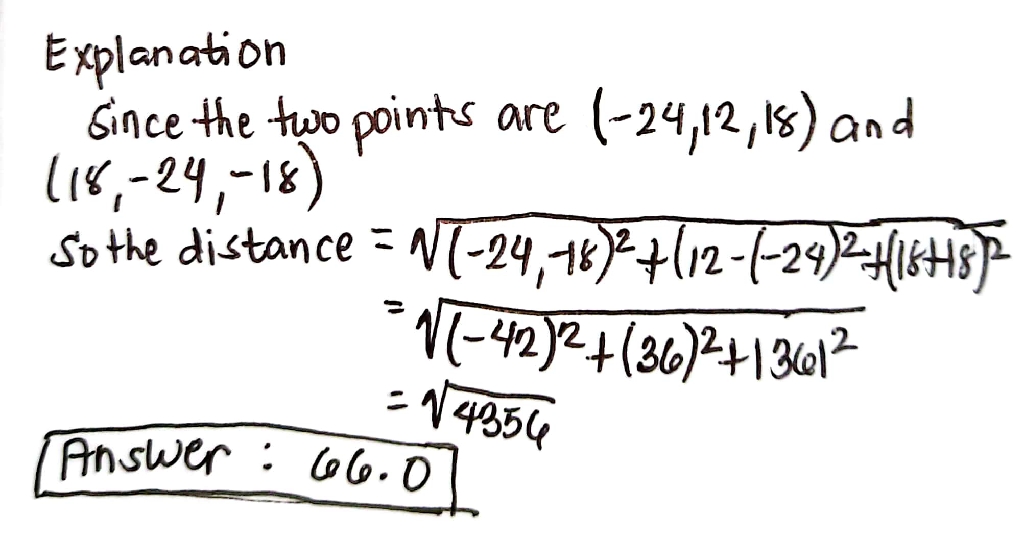 Explanation
Since the two points are (-24,12,18) and
(18,-24,-18)
So the distance = √(-24,-18)²+(12-(-24)²+(18+18)²
= √(-42)²+(36)²+|36|²
= √4356
Answer : 66.0